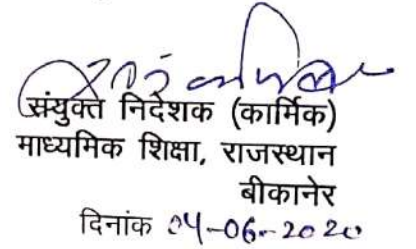 संयुक्त निदेशक (कार्मिक)
माध्यमिक शिक्षा, राजस्थान
बीकानेर
दिनांक 04-06-2020